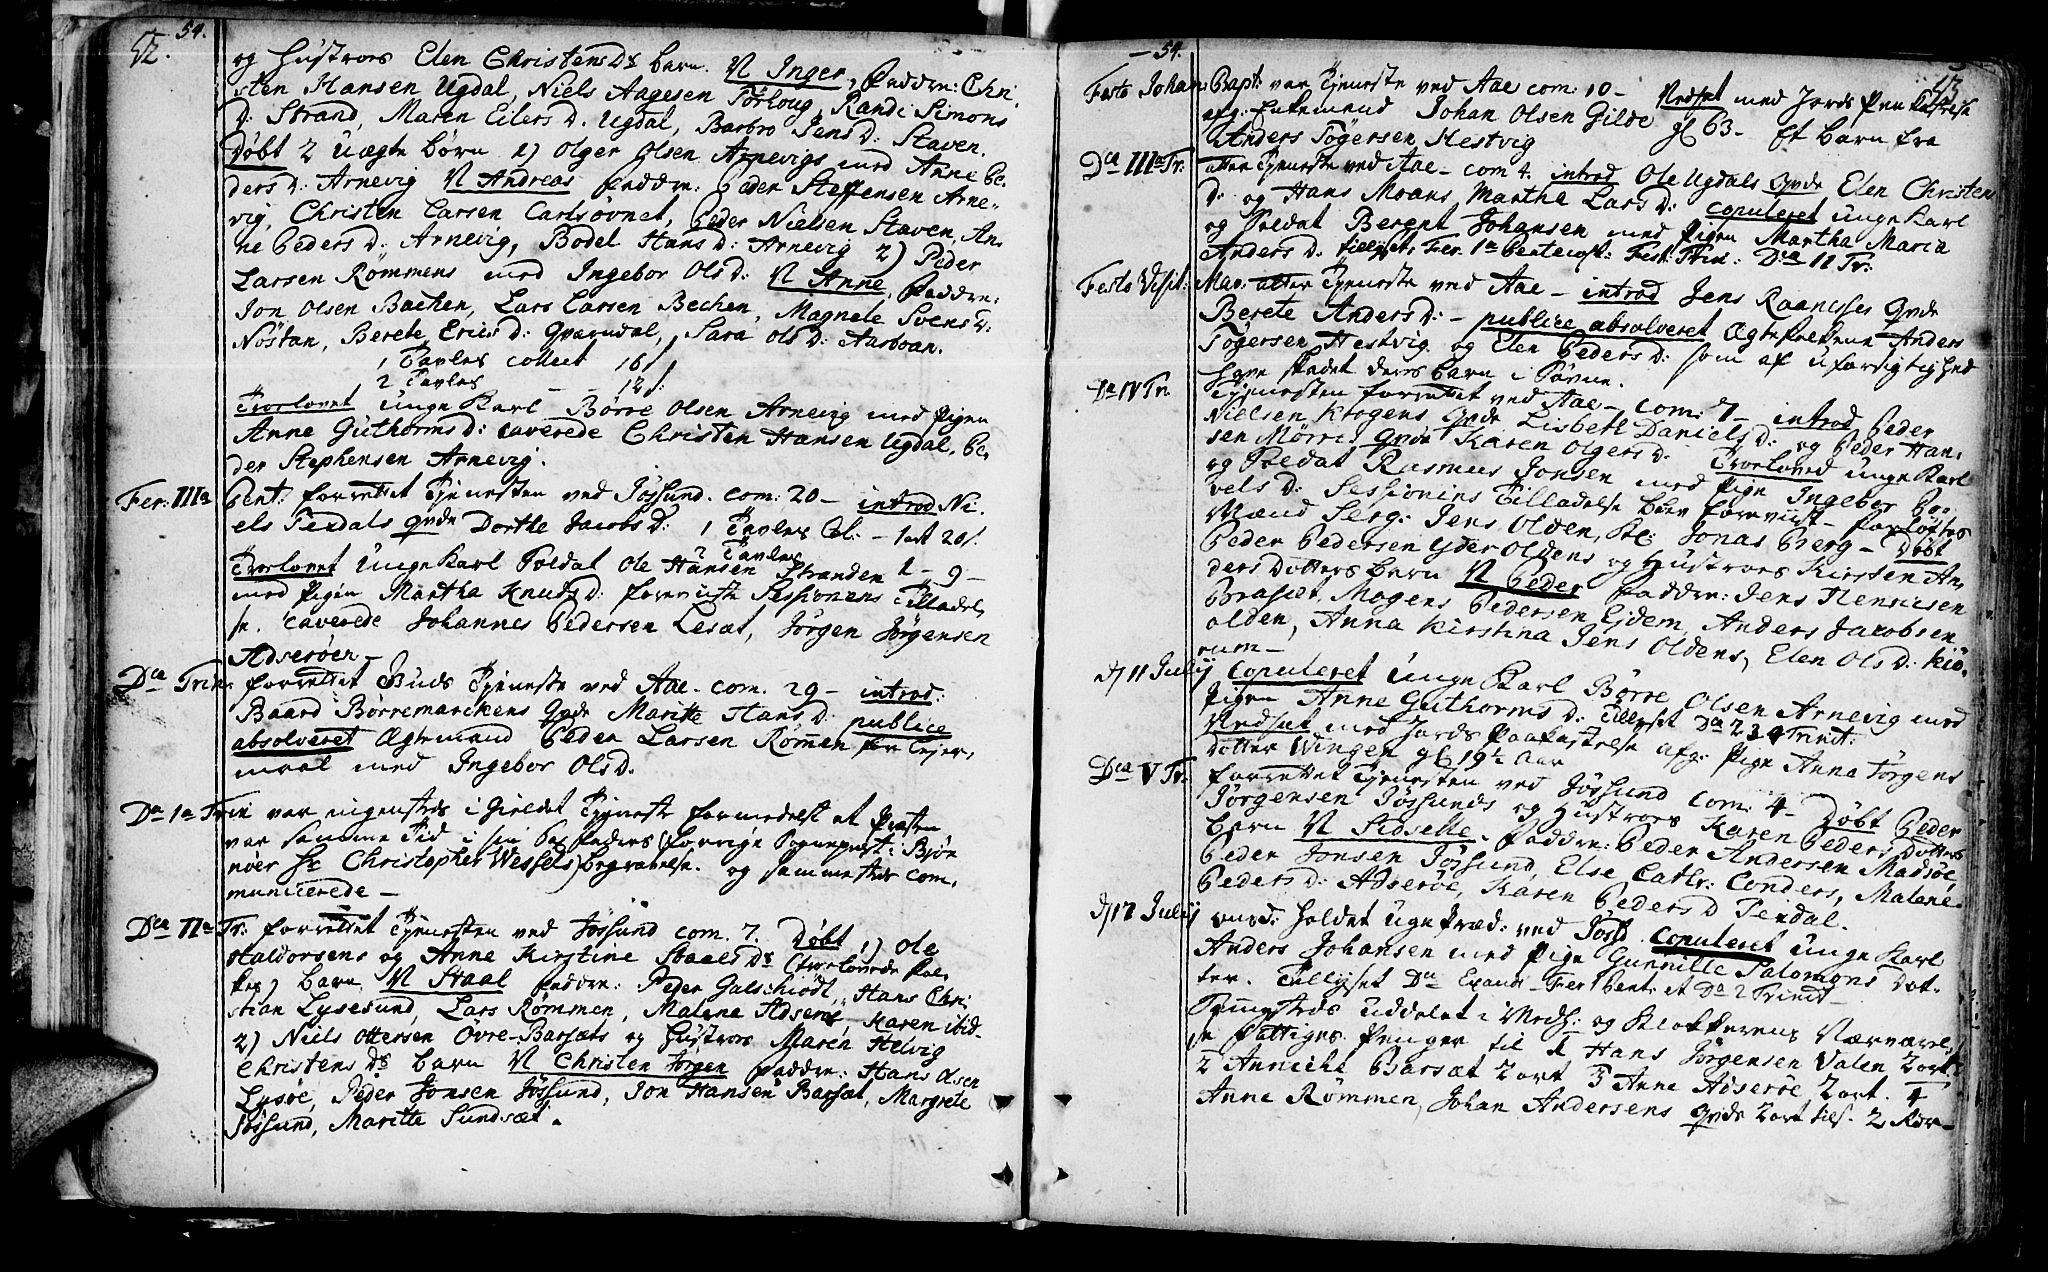 52. 54.
og Hustroes Elen ChristensDr barn. N Inger, Faddre: Chri,
sten Hansen Ugdal, Niels Aagesen Torloug, Randi Simons
D. Strand, Maren Eilers D. Ugdal, Barbro Jens D. Staven.
Døbt 2 Uægte børn 1) Olger Olsen Arnevigs med Anne Pe,
ders D: Arnevig N Andreas Faddre: Peder Steffensen Arne,
vig, Christen Larsen Carlsøvnet, Peder Nielsen Staven, An,
ne Peders D: Arnevig, Bodel Hans D: Arnevig 2) Peder
Larsen Römmens med Ingebor Ols D: N Anne, Faddre:
Jon Olsen Bachen, Lars Larsen Bechen, Magnele Svens D:
Nöstan, Berete Erics D: Qværndal, Sara Ols D: Aarboan.
1 Tavles collect 16 s
2 Tavles - - 12 s.
Trorlovet Unge Karl Börre Olsen Arnevig med Pigen
Anne Guthorms D: caverede Christen Hansen Ugdal, Pe,
der Stephensen Arnevig.
Fer: IIIa Pent: forrettet Tjenesten ved Jössund. com: 20 - introd Ni,
els Texdals Qvde Dorthe Jacobs D: 1 Tavles Col: - 1 ort 20 s.
2 Tavles
Trorlovet Unge Karl Soldat Ole Hansen Stranden 1 - 9 -
med Pigen Martha Knuds D: foreviiste Sessionens Tilladel,
se. caverede Johannes Pedersen Lesæt, Jörgen Jörgensen
Adseröen -
Dca Trin: forrettet Buds Tjeneste ved Aae - com. 29 - introd:
Baard Börremarckens Qvde Maritte Hans D: publice
absolveret Ægtemand Peder Larsen Römmen for Lejer,
maal med Ingebor Ols D.
Da 1a Trin var ingensteds i Gieldet Tjeneste formedelst at Præsten
var samme Tid i sin faders (forrige Sognepræst i Björ
nöer Hr Christopher Wessels) begravelse. og sammesteds com,
municerede -
Dca IIa Tr: forrettet Tjenesten ved Jössund com. 7. Døbt 1) Ole
Haldorsens og Anne Kirstine Staals Dr (trorlovede fol,
kes) barn N Staal Faddre: Peder Galschiödt, Hans Chri
stian Lysesund, Lars Römmen, Malene Adseröe, Karen ibid.
2) Niels Ottersen Övre-Barsæts og Hustroes Maren Helvig
Christens Dr barn N Christen Jörgen Faddre: Hans Olsen
Lysöe, Peder Jonsen Jössund, Jon Hansen Barsæt, Margrete
Jössund, Maritte Sundsæt.
- 54. 53
Festo Johan: Bapt: var Tjeneste ved Aae com: 10 - Nedsat med Jords Paakastelse
afg: Enkemand Johan Olsen Gilde gl 63 - Et barn fra
Anders Tögersen Hestvig
Dca IIIa Tr: atter Tjeneste ved Aae - com 4. introd Ole Ugdals Qvde Elen Christens
D: og Hans Moans Marthe Lars D: copuleret Unge Karl
og Soldat Berent Johansen med Pigen Martha Maria
Anders D. tillyst Fer. 1a Pentecost: Fest: Trin: Dca II Tr:
Festo Visit: Mar: atter Tjeneste ved Aae - introd Jens Raanesses Qvde
Berete Anders D: - publice absolveret Ægtefolkene Anders
Tögersen Hestvig og Elen Peders D: som af uforsigtighed
have skadet deres barn i Sövne.
Da IV Tr. Tjenesten forrettet ved Aae - com: 7 - introd Peder
Nielsen Klogens Qvde Lisbeth Daniels D: og Peder Han,
sen Mörris Qvde Karen Olgers D. Trorloved Unge Karl
og Soldat Rasmus Jonsen med Pige Ingebor Po,
vels D: Sessionens Tilladelse blev foreviist - forløftes
Mænd Serg: Jens Olden, Jonas Berg - Døbt
Peder Pedersen Yder Oldens og Hustroes Kirsten An,
ders Dotters barn N Peder Faddre: Jens Henricsen
Brasæt, Mogens Pedersen Ejdem, Anders Jacobsen
Olden, Anna Kirstina Jens Oldens, Elen Ols D: Kiö,
rum -
d 11 Julij Copuleret Unge Karl Börre Olsen Arnevig med
Pigen Anne Guthorms D: Tillyst Da 2 3 4 Trinit:
Nedsat med Jords Paakastelse afg: Pige Anna Jörgens
Dotter Wingen gl 19½ Aar
Dca V Tr: forrettet Tjenesten ved Jössund com: 4 - Døbt Peder
Jörgensen Jössunds og Hustroes Karen Peders Dotters
barn N Sidselle, Faddre: Peder Andersen Madsöe,
Peder Jonsen Jössund, Else Cathr: Conders, Malene
Peders D: Adseröe, Karen Peders D Texdal.
d 17 Julij holdet Uge Præd: ved Jössd. Copuleret Unge Karl
Anders Johansen med Pige Gunnille Salomons Dot,
ter. Tillyset Da Exaudi - Fer 1 Pent: et Da 2 Trinit -
uddelet i Medh: og Klokkerens Nærværel,
se Fattiges Penger til 1 Hans Jörgensen Valen 2 ort
2 Anniche Barsæt 2 ort 3 Anne Adseröe 2 ort. 4
Anne Römmen, Johan Andersens Qvde 2 ort 2 Kor -